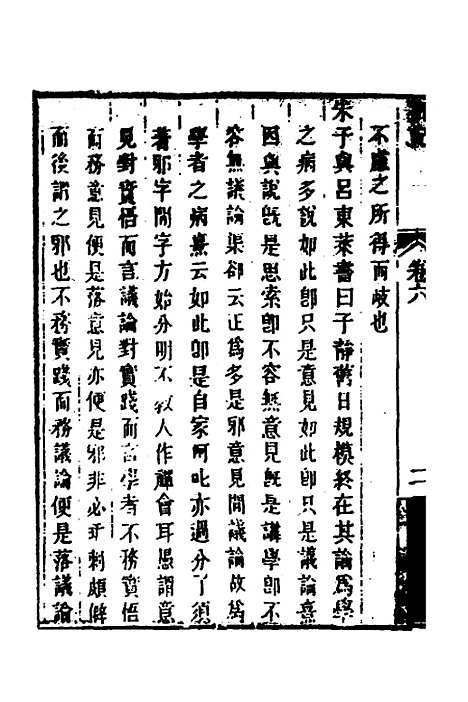 卷六
二
不慮之所得而歧也
朱子與呂東萊書曰子靜舊日規模終在其論為學
之病多說如此卽只是意見如此卽只是議論熹
因與說旣是思索卽不容無意見旣是講學卽不
容無議論渠却云正為多是邪意見閒議論故為
學者之病熹云如此卽是自家呵叱亦過分了須
著邪字閒字方始分明不教人作禪會耳愚謂意
見對實悟而言議論對實踐而言學者不務實悟
而務意見便是落意見亦便是邪非必乖刺頗僻
而後謂之邪也不務實踐而務議論便是落議論